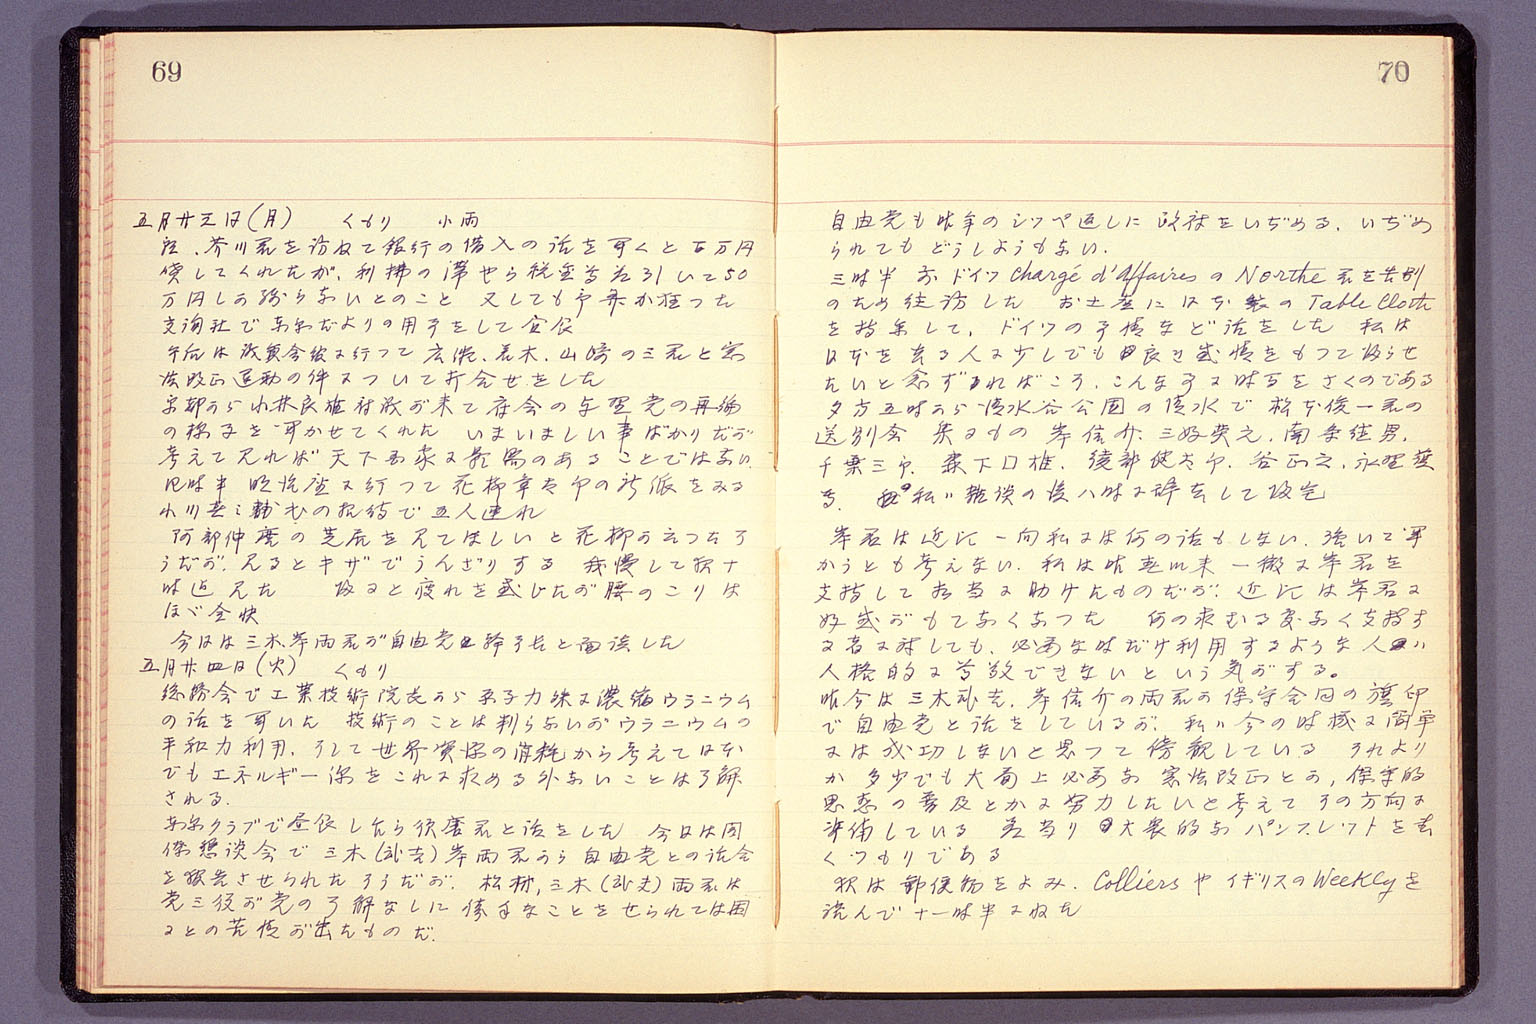 69
五月廿三日(月) くもり 小雨
江、芥川君を訪ねて銀行の借入の話を聞くと百万円
貸してくれたが、利払の滞やら税金等差引いて50
万円しか残らないとのこと 又しても
交詢社で の用事をして昼食
午后は議員会館に行つて広瀬、荒木、山崎の三君と憲
法改正運動の件について打合せをした
京都から小林良雄 が来て府会の与野党の再編
の様子を聞かせてくれた いまいましい事ばかりだが
考えて見れば天下国家に影響のあることではない
四時半 明治座に行つて花柳章太郎の新派をみる
小川 の招待で五人連れ
阿部仲麿の芝居を見てほしいと花柳が云つたそ
うだが、見るとキザでうんざりする 我慢して夜十
時迄見た 帰ると疲れを感じたが腰のこりは
ほゞ全快
今日は三木、岸両君が自由党 幹事長と面談した
五月廿四日(火) くもり
総務会で工業技術院長から原子力殊に濃縮ウラニウム
の話を聞いた 技術のことは判らないがウラニウムの
平和力利用、そして世界資源の消耗から考えて日本
でもエネルギー源をこれに求める外ないことは了解
される.
クラブで昼食したら須磨君と話をした 今日は同
僚懇談会で三木(武吉)岸両君から自由党との話合
を報告させられたそうだが、松村,三木(武夫)両君は
党三役が党の了解なしに勝手なことをせられては困
るとの苦情が出たものだ.
70
自由党も昨年のシツペ返しに政府をいぢめる. いぢめ
られてもどうしようもない.
三時半 ドイツ Chargé d'Affaires の Northe 君を告別
のため往訪した お土産に日本 の Table Cloth
を持参して, ドイツの事情など話をした 私は
日本を去る人に少しでも良き感情をもつて帰らせ
たいと念ずればこそ、こんな事に時間をさくのである
夕方五時から清水谷公園の清水で松本俊一君の
送別会 来るもの 岸信介、三好英之、南条徳男、
千葉三郎、森下国雄、綾部健太郎、谷正之、永野護
等. 私ハ雑談の後八時に辞去して帰宅
岸君は近比一向私には何の話もしない. 強いて聞
かうとも考えない. 私は昨夏以来一徹に岸君を
支持して相当に助けたものだが、近比は岸君に
好感がもてなくなつた 何の求むる処なく支持す
る者に対しても、必要な時だけ利用するような人ハ
人格的に尊敬できないという気がする。
昨今は三木武吉、岸信介の両君が保守合同の旗印
で自由党と話をしているが、私ハ今の時機に簡単
には成功しないと思つて傍観している それより
か多少でも大局上必要な憲法改正とか, 保守的
思想の普及とかに努力したいと考えてその方向に
準備している 差当り大衆的なパンフレツトを書
くつもりである
夜は郵便物をよみ. Colliers や イギリスの Weekly を
読んで十一時半にねた